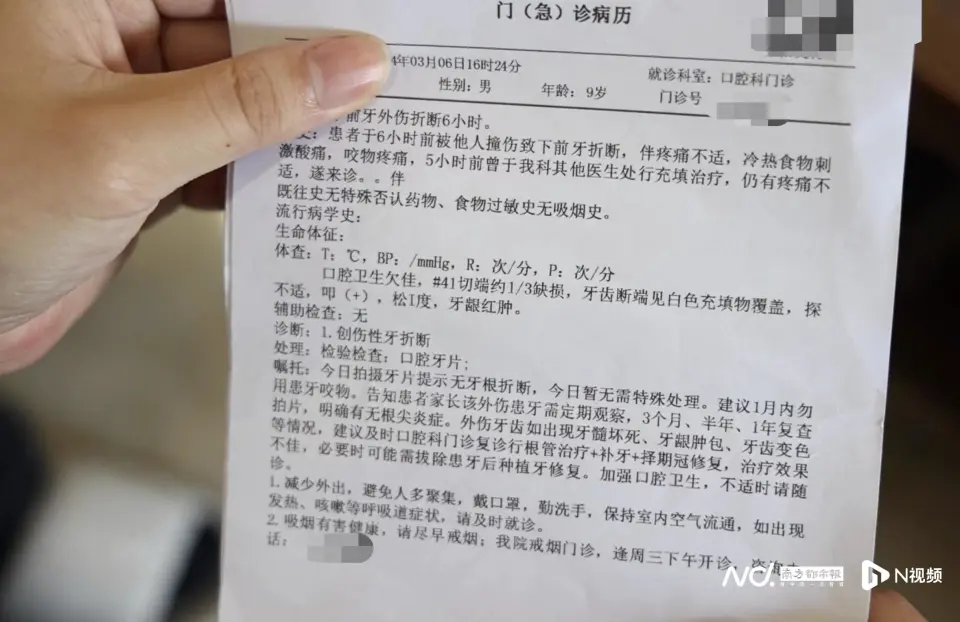 门（急）诊病历
4年03月06日16时24分
就诊科室：口腔科门诊
性别：男
年龄：9岁
门诊号
前牙外伤折断6小时。
：患者于6小时前被他人撞伤致下前牙折断，伴疼痛不适，冷热食物刺
激酸痛，咬物疼痛，5小时前曾于我科其他医生处行充填治疗，仍有疼痛不
适，遂来诊。。伴
既往史无特殊否认药物、食物过敏史无吸烟史。
流行病学史：
生命体征：
体查：T：℃，BP：/mmHg，R：次/分，P：次/分
口腔卫生欠佳，#41切端约1/3缺损，牙齿断端见白色充填物覆盖，探
不适，叩（+），松I度，牙龈红肿。
辅助检查：无
诊断：1.创伤性牙折断
处理：检验检查：口腔牙片；
嘱托：今日拍摄牙片提示无牙根折断，今日暂无需特殊处理。建议1月内勿
用患牙咬物。告知患者家长该外伤患牙需定期观察，3个月、半年、1年复查
拍片，明确有无根尖炎症。外伤牙齿如出现牙髓坏死、牙龈肿包、牙齿变色
等情况，建议及时口腔科门诊复诊行根管治疗+补牙+择期冠修复，治疗效果
不佳，必要时可能需拔除患牙后种植牙修复。加强口腔卫生，不适时请随
诊。
1.减少外出，避免人多聚集，戴口罩，勤洗手，保持室内空气流通，如出现
发热、咳嗽等呼吸道症状，请及时就诊。
2.吸烟有害健康，请尽早戒烟；我院戒烟门诊，逢周三下午开诊，咨询
话：
南方都市报
N视频